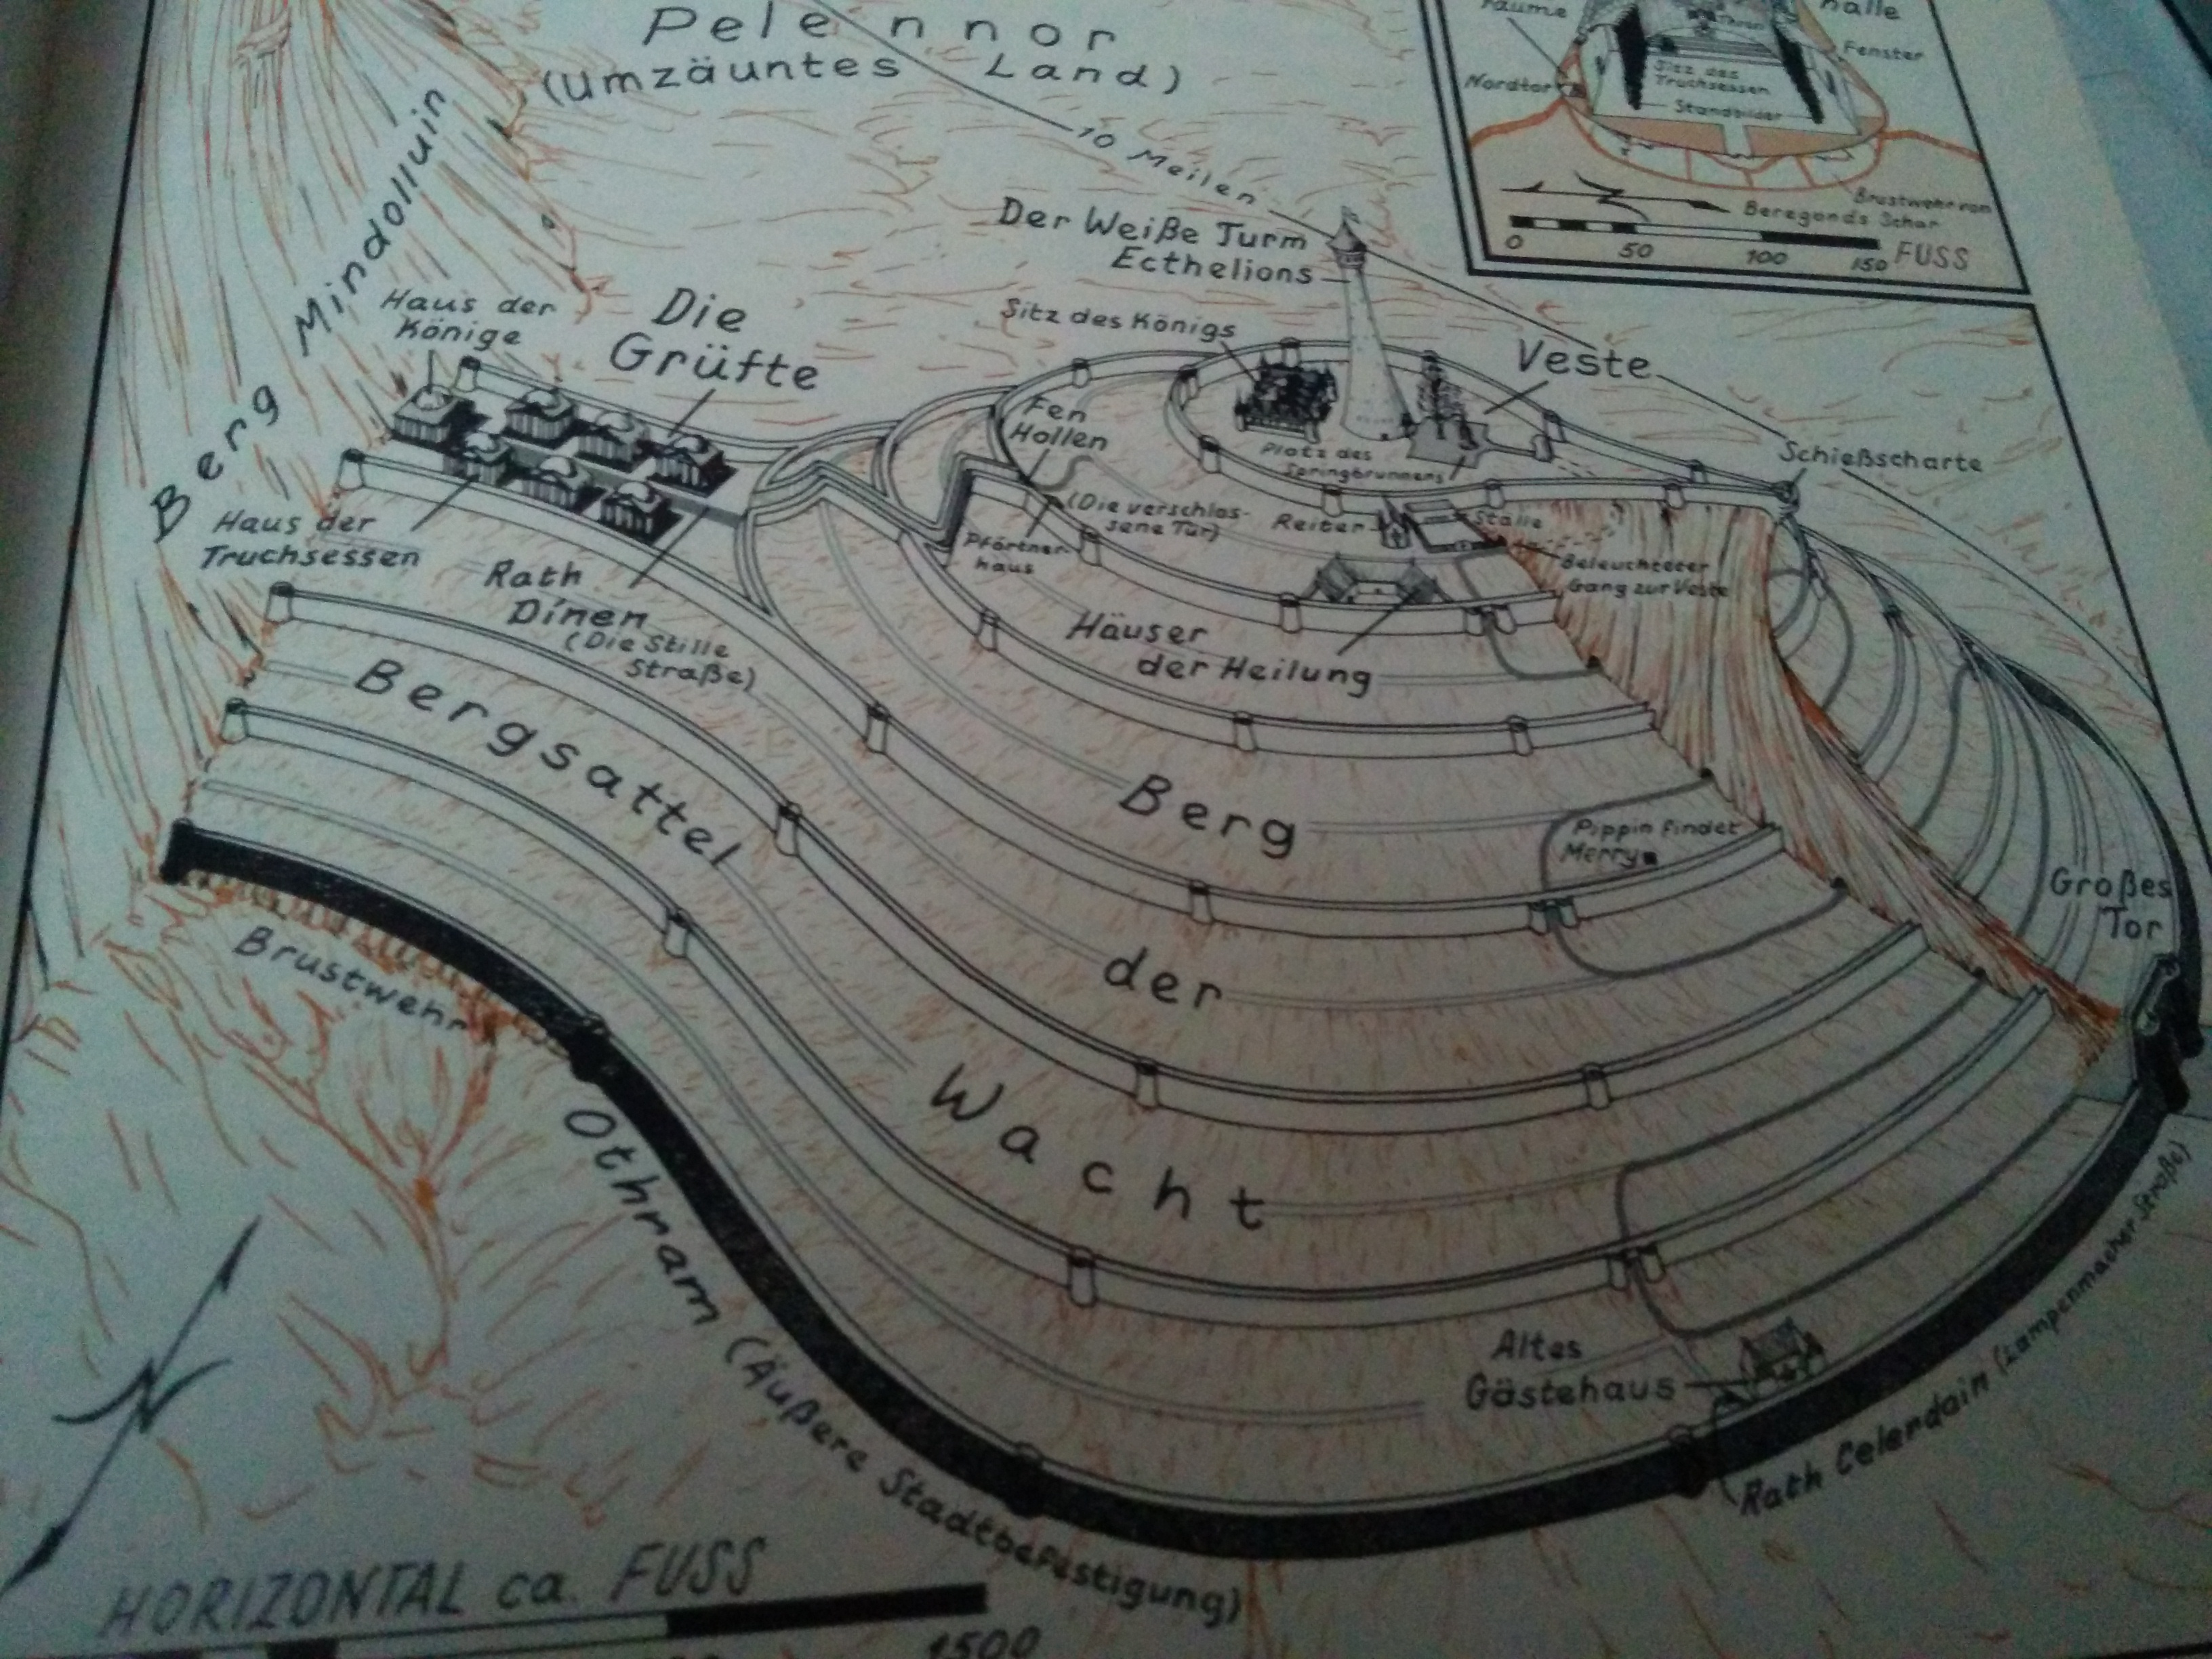 Pelennor
(Umzäuntes Land)
10 Meilen
Räume
halle
Thron
Fenster
Nordtor
Sitz des
Truchsessen
Standbilder
Brustwehr von
Beregonds Schar
0 50 100 150 FUSS
Berg Mindolluin
Der Weiße Turm
Ecthelions
Sitz des Königs
Veste
Haus der
Könige
Die
Grüfte
Fen
Hollen
Platz des
Springbrunnens
Schießscharte
(Die verschlos-
sene Tür)
Reiter
Ställe
Pförtner-
haus
Beleuchteter
Gang zur Veste
Haus der
Truchsessen
Rath
Dínen
(Die Stille
Straße)
Häuser
der Heilung
Bergsattel
Berg
der
Wacht
Pippin findet
Merry
Großes
Tor
Brustwehr
Othram (Äußere Stadtbefestigung)
Altes
Gästehaus
Rath Celerdain (Lampenmacher Straße)
HORIZONTAL ca. FUSS
1500